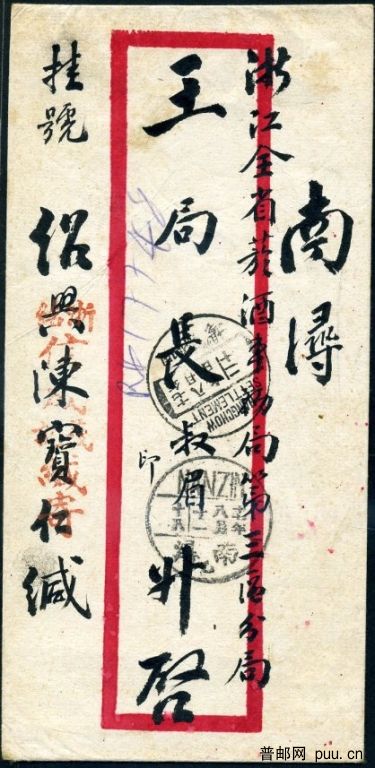 南潯
浙江全省菸酒事務局第三區分局
王局長叔眉升啓
印
掛號
紹興陳寶仁緘
HANGCHOW
SETTLEMENT
NANZIN
普邮网 puu.cn